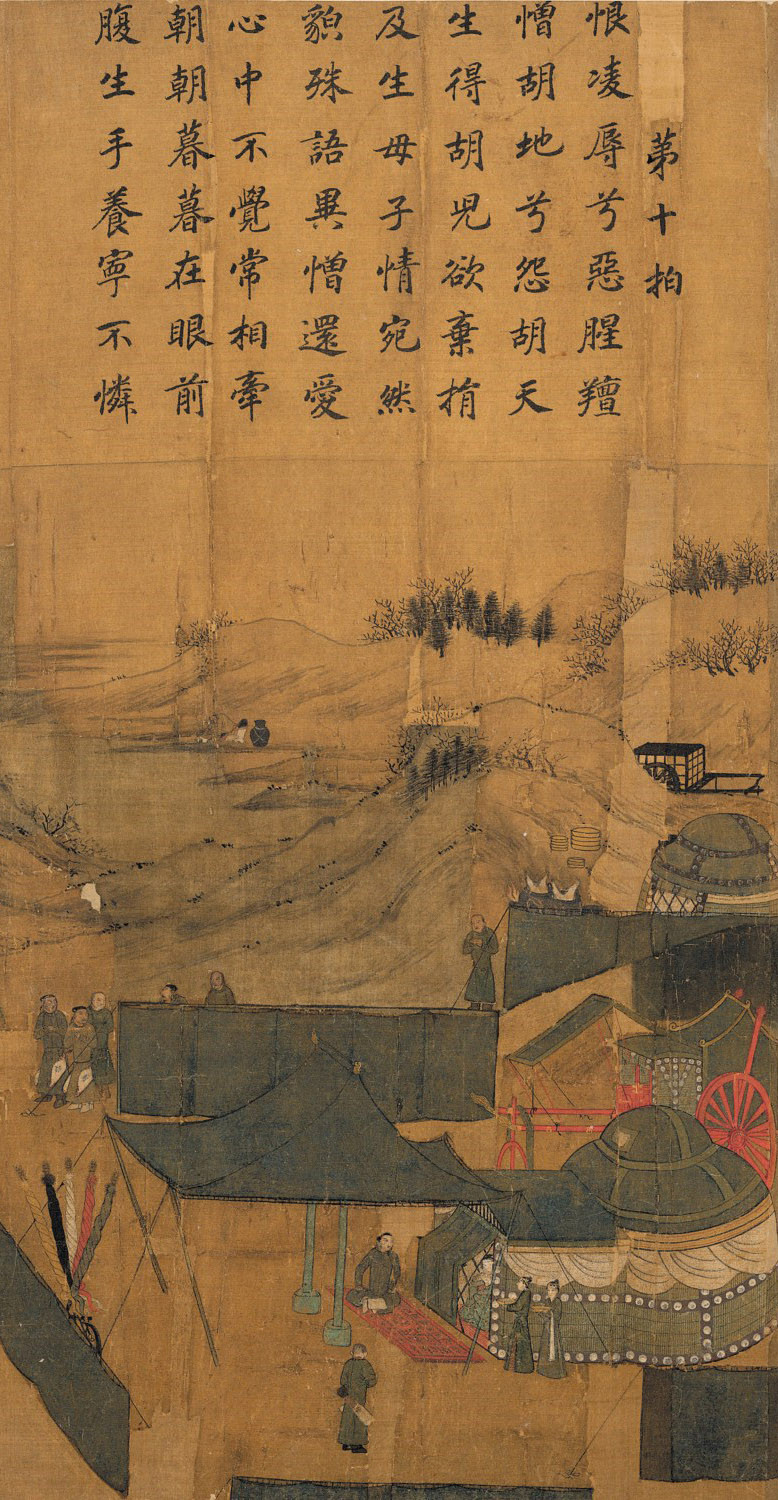 苐十拍
恨凌辱兮惡腥羶
憎胡地兮怨胡天
生得胡児欲棄捐
及生母子情宛然
貌殊語異憎還愛
心中不覺常相牽
朝朝暮暮在眼前
腹生手養寧不憐